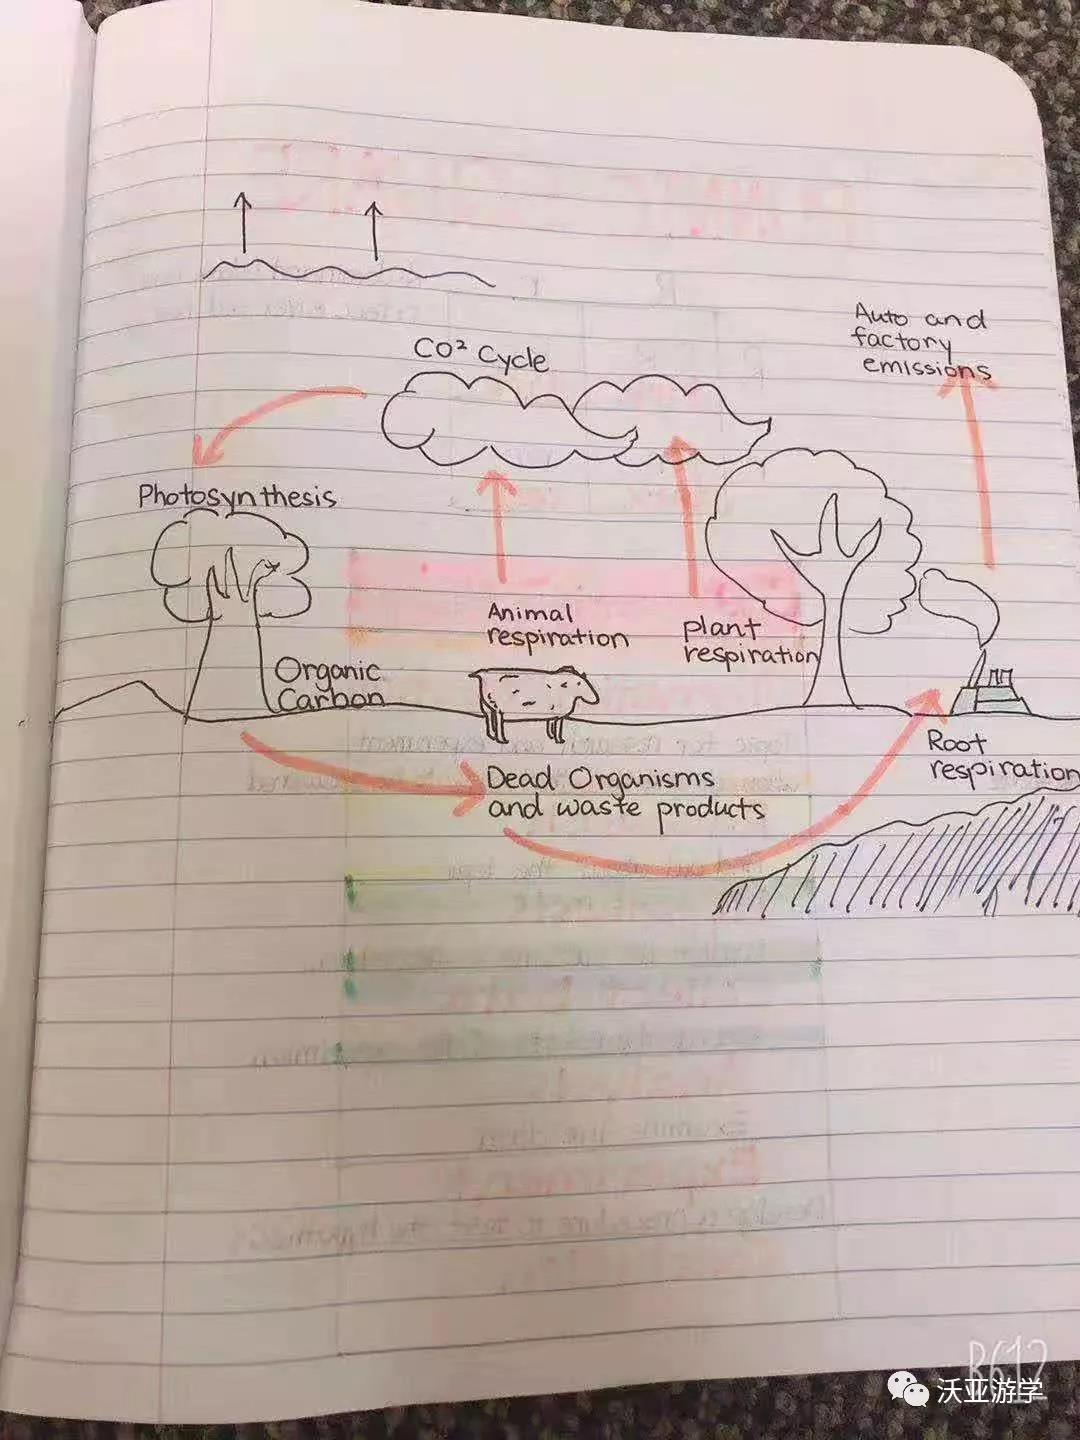 CO² Cycle
Auto and
factory
emissions
Photosynthesis
Animal
respiration
plant
respiration
Organic
Carbon
Dead Organisms
and waste products
Root
respiration
B612
沃亚游学